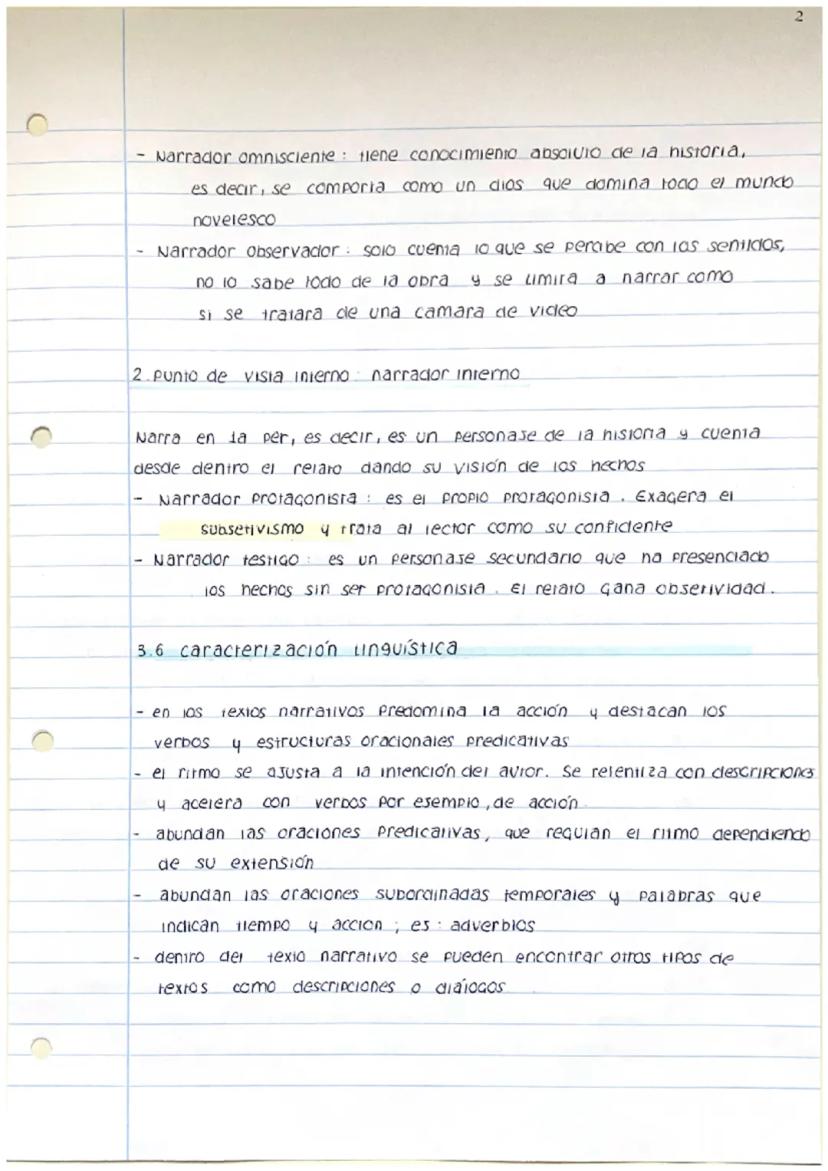 2
- Narrador omnisciente : tiene conocimiento absoluto de la historia,
es decir, se comporta como un dios que domina todo el mundo
novelesco
- Narrador observador : solo cuenta lo que se percibe con los sentidos,
no lo sabe todo de la obra y se limita a narrar como
si se tratara de una camara de video
2. Punto de vista interno : narrador interno
Narra en 1a per, es decir, es un personaje de la historia y cuenta
desde dentro el relato dando su visión de los hechos
- Narrador protagonista : es el propio protagonista. Exagera el
subjetivismo y trata al lector como su confidente
- Narrador testigo : es un personaje secundario que ha presenciado
los hechos sin ser protagonista. El relato gana objetividad.
3.6 caracterización lingüística
- en los textos narrativos predomina la acción y destacan los
verbos y estructuras oracionales predicativas
- el ritmo se ajusta a la intención del autor. Se relentiza con descripciones
y acelera con verbos por ejemplo, de acción
- abundan las oraciones predicativas, que regulan el ritmo dependiendo
de su extensión
- abundan las oraciones subordinadas temporales y palabras que
indican tiempo y acción ; ej : adverbios
- dentro del texto narrativo se pueden encontrar otros tipos de
textos como descripciones o diálogos